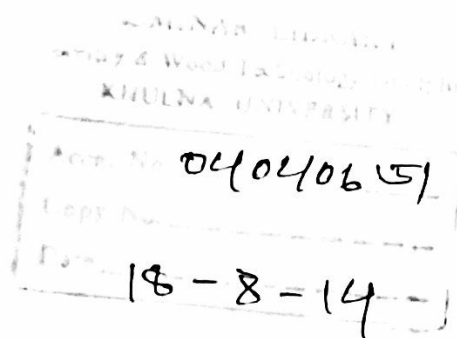 LIBRARY
& Wood Technology
KHULNA UNIVERSITY
Accn. No 040406
Copy No
Date 18-8-14